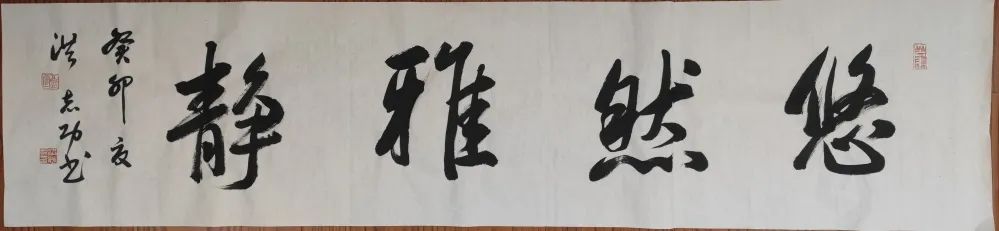 悠然雅静
癸卯夏
洪志功书